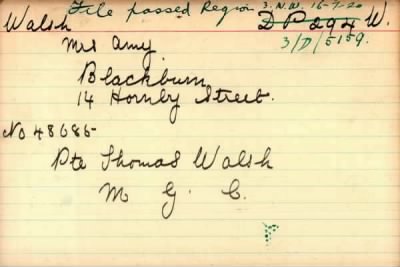 File passed Region 3. N.W. 16-7-20
Walsh D P 294 W.
Mrs Amy 3/D/5159.
Blackburn
14 Hornby Street.
No 48685
Pte Thomas Walsh
M G. C.